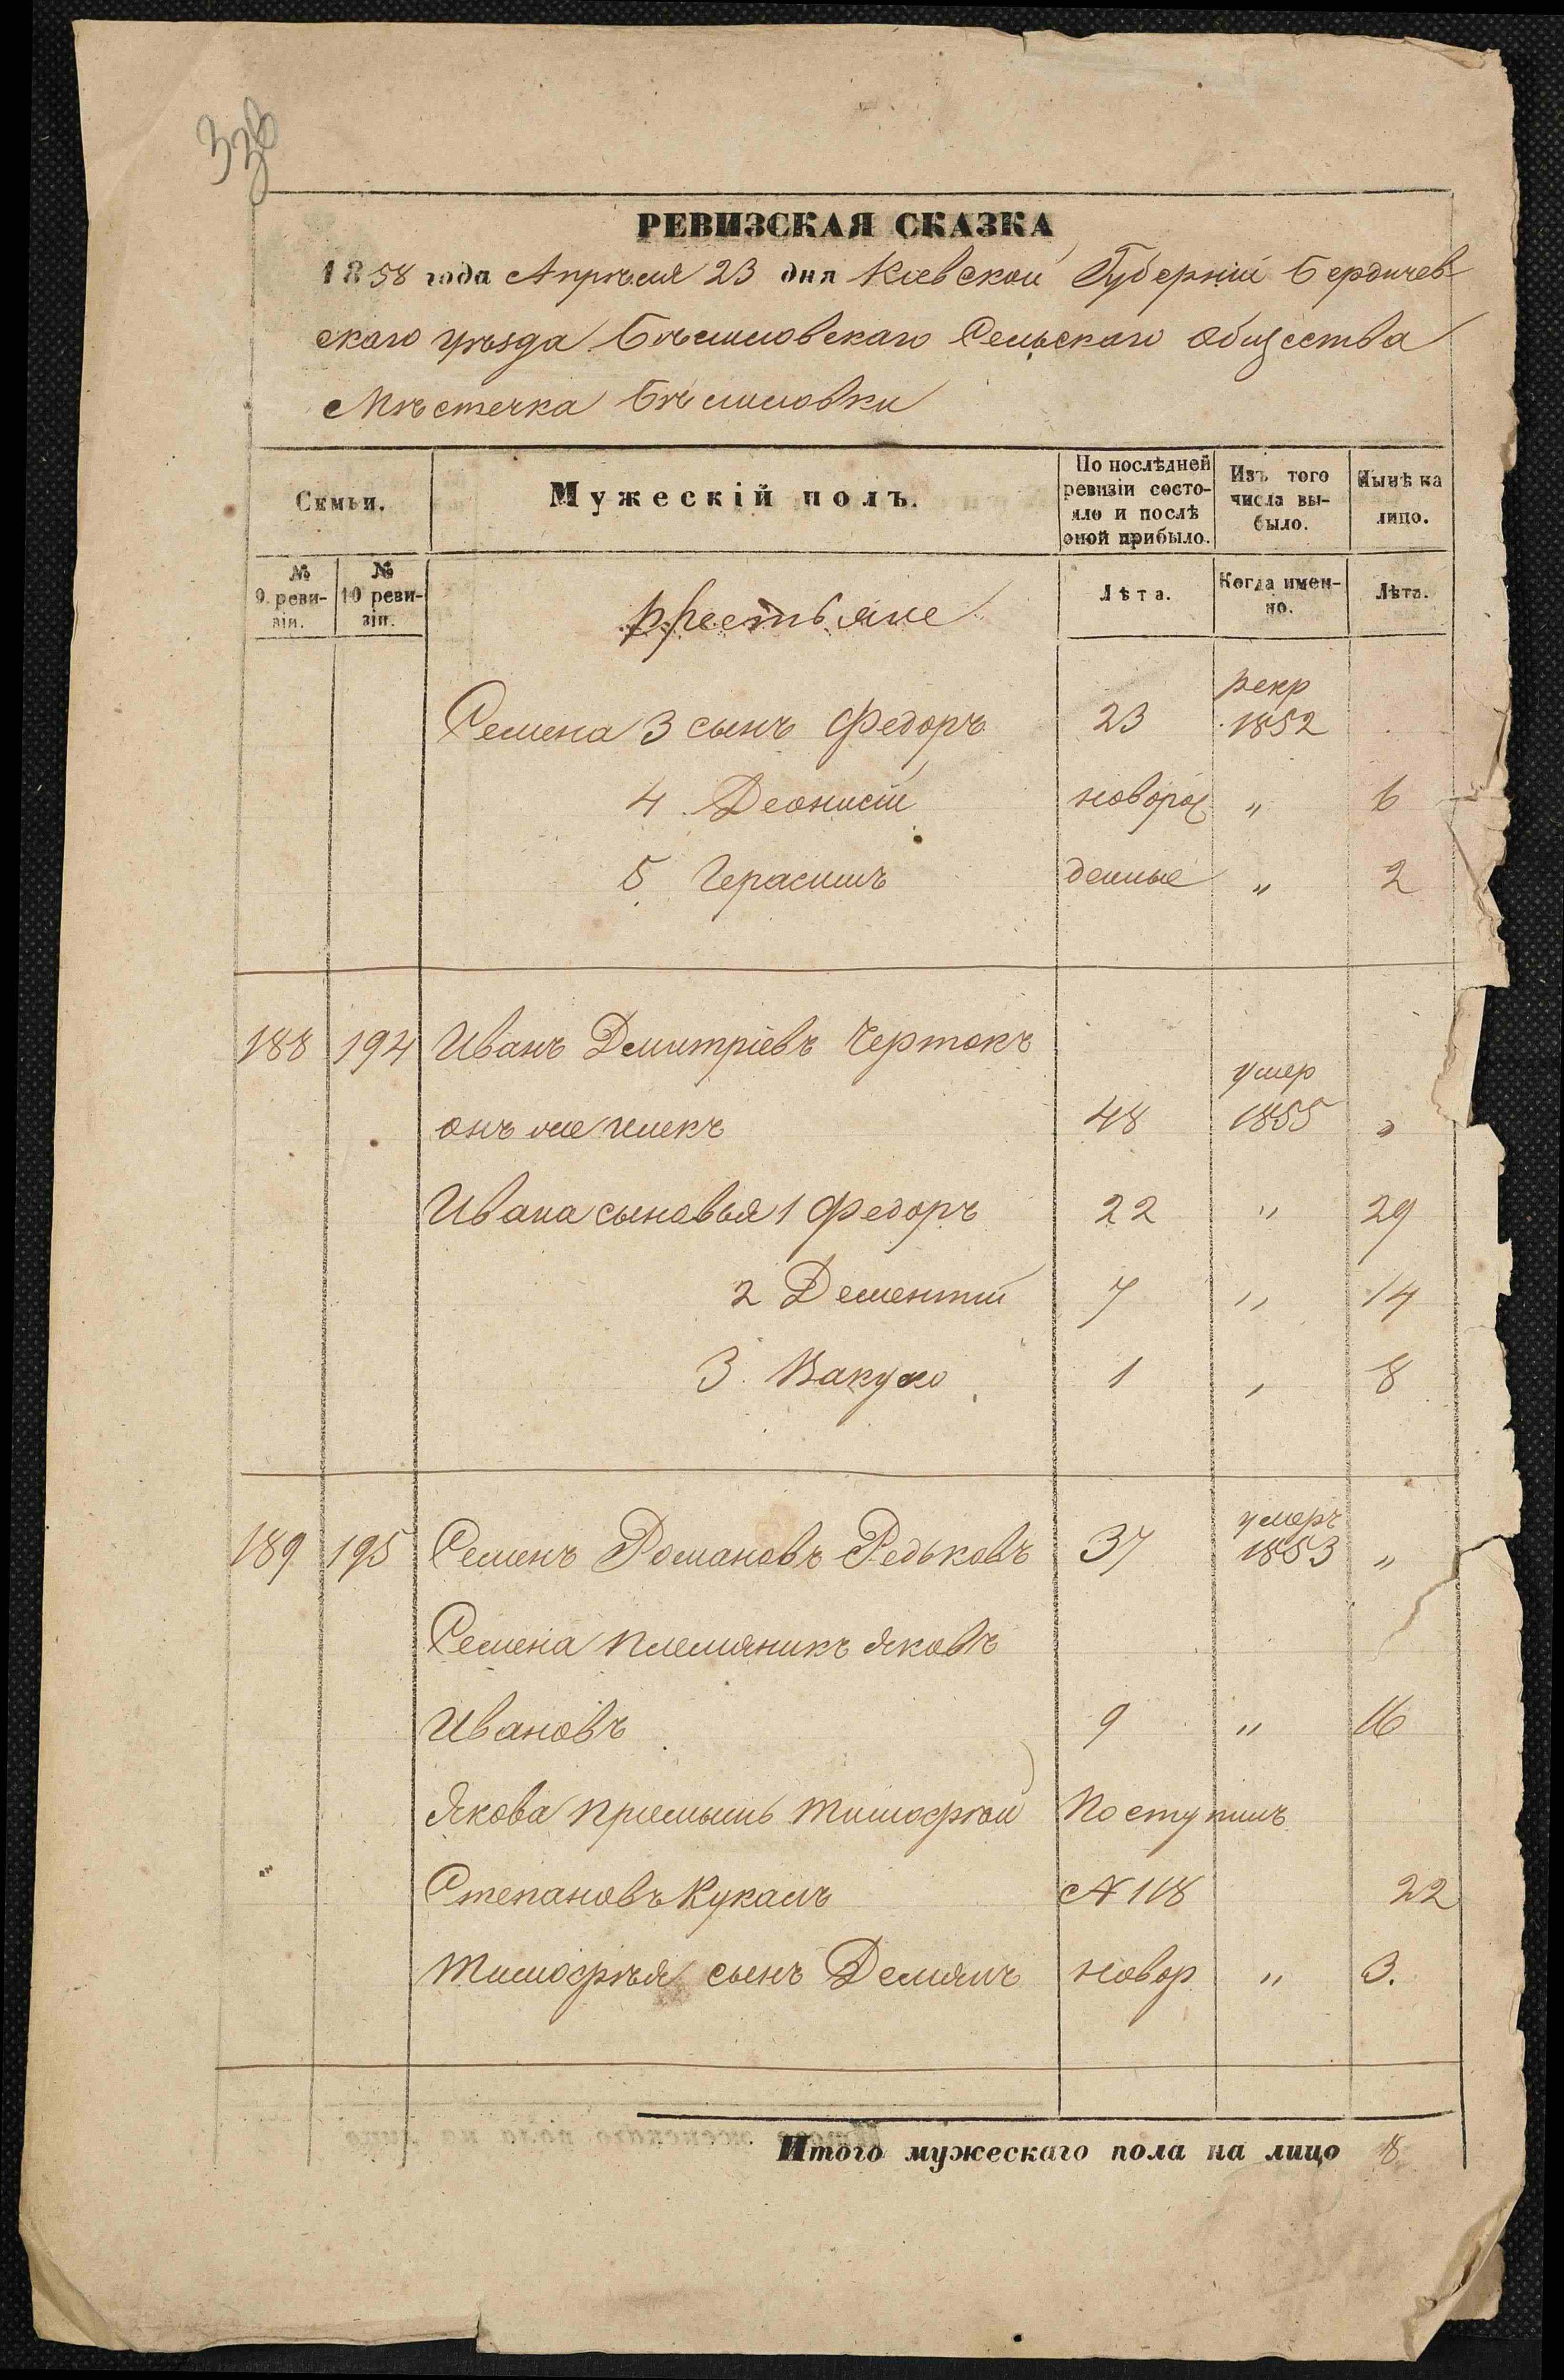 336
РЕВИЗСКАЯ СКАЗКА
1858 года Апрѣля 23 дня Кіевской Губерніи Бердичев-
скаго уѣзда Бѣлиловскаго Сельскаго Общества
Мѣстечка Бѣлиловки
Семьи.
Мужескій полъ.
По послѣдней ревизіи состояло и послѣ оной прибыло.
Изъ того числа выбыло.
Нынѣ на лицо.
№ 9 ревизіи.
№ 10 ревизіи.
Крестьяне
Лѣта.
Когда именно.
Лѣта.
рекр
Семена 3 сынъ Федоръ 23 1852
4 Деонисій новорож „ 6
5 Герасимъ денные „ 2
188 194 Иванъ Дмитріевъ Чертокъ
умер
онъ же 48 1855 „
Ивана сыновья 1 Федоръ 22 „ 29
2 Дементій 7 „ 14
3 Вакула 1 „ 8
умеръ
189 195 Семенъ Романовъ Редьковъ 37 1853 „
Семена племяникъ Яковъ
Ивановъ 9 „ 16
Якова пріемышъ Тимофѣй Поступилъ
Степановъ № 118 22
Тимофѣя сынъ Демянъ новор „ 3.
Итого мужескаго пола на лицо 8